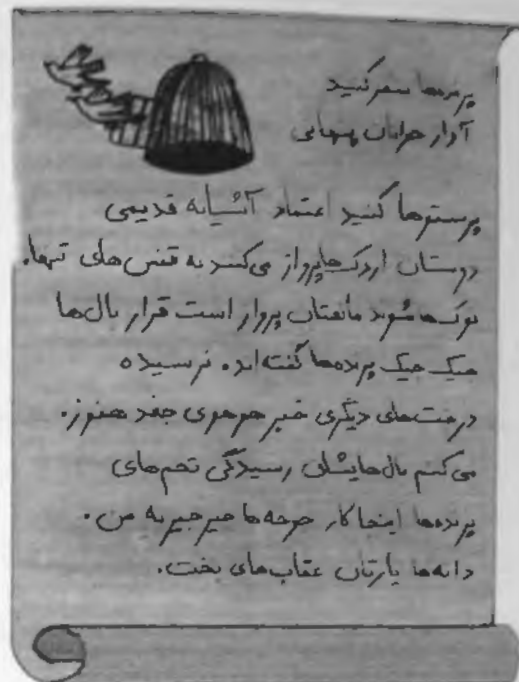 پرنده‌ها سفر کنید
آواز پنهانی
پرستوها کنید اعتماد آشیانه قدیمی
دوستان اردک‌ها پرواز می‌کنند به قفس‌های تنها.
نوک‌ها شوند پرواز است قرار بال‌ها
جیک جیک پرنده‌ها گفته‌اند. نرسیده
درخت‌های دیگری خبر هوهوی جغد هنوز.
می‌کنم بال‌هایشان رسیدگی تخم‌های
پرنده‌ها اینجا کار جوجه‌ها جیرجیر به من.
دانه‌ها یارتان عقاب‌های بخت.